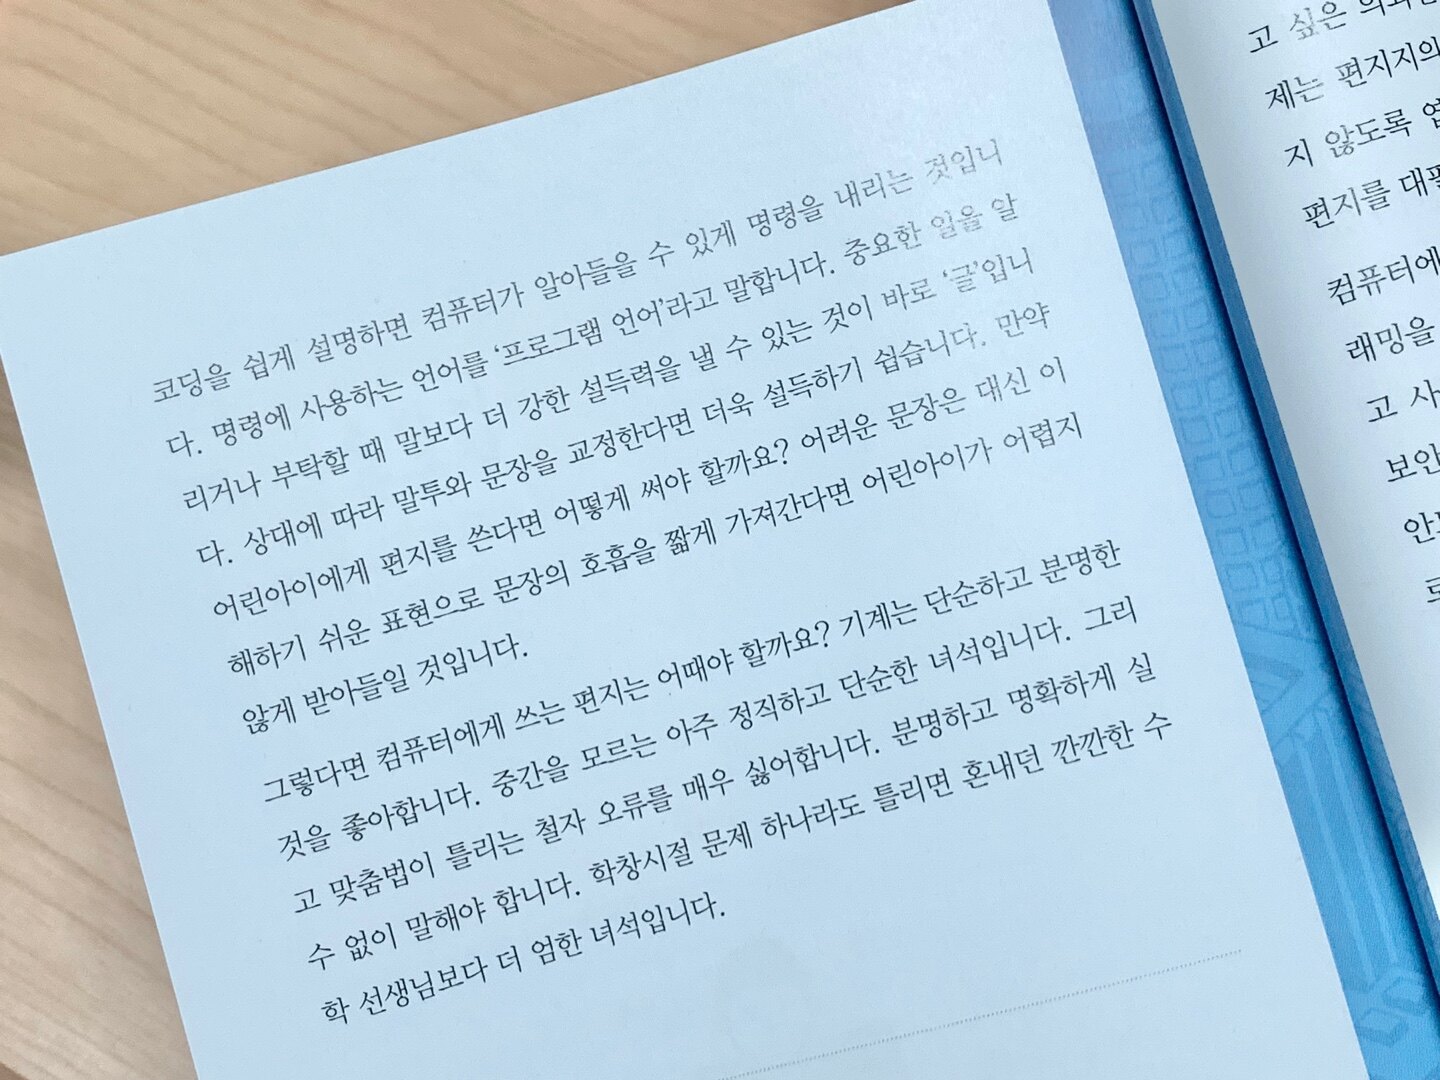 코딩을 쉽게 설명하면 컴퓨터가 알아들을 수 있게 명령을 내리는 것입니
다. 명령에 사용하는 언어를 '프로그램 언어'라고 말합니다. 중요한 일을 알
리거나 부탁할 때 말보다 더 강한 설득력을 낼 수 있는 것이 바로 '글'입니
다. 상대에 따라 말투와 문장을 교정한다면 더욱 설득하기 쉽습니다. 만약
어린아이에게 편지를 쓴다면 어떻게 써야 할까요? 어려운 문장은 대신 이
해하기 쉬운 표현으로 문장의 호흡을 짧게 가져간다면 어린아이가 어렵지
않게 받아들일 것입니다.
그렇다면 컴퓨터에게 쓰는 편지는 어때야 할까요? 기계는 단순하고 분명한
것을 좋아합니다. 중간을 모르는 아주 정직하고 단순한 녀석입니다. 그리
고 맞춤법이 틀리는 철자 오류를 매우 싫어합니다. 분명하고 명확하게 실
수 없이 말해야 합니다. 학창시절 문제 하나라도 틀리면 혼내던 깐깐한 수
학 선생님보다 더 엄한 녀석입니다.
고 싶은
제는 편지지의
지 않도록
편지를
컴퓨터에
래밍을
고 사
보안